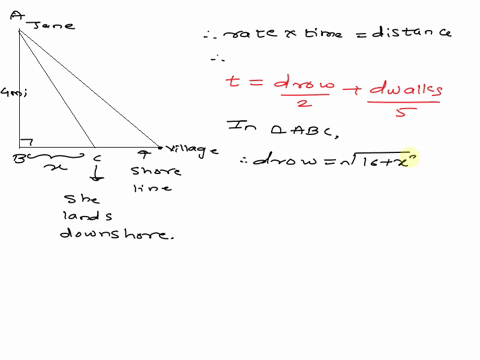 A
Jane
4mi
B
x
C
village
she
lands
downshore.
shore
line
∴ rate x time = distance
∴
t = drow/2 + dwalks/5
In △ABC,
∴ drow = √16+x²